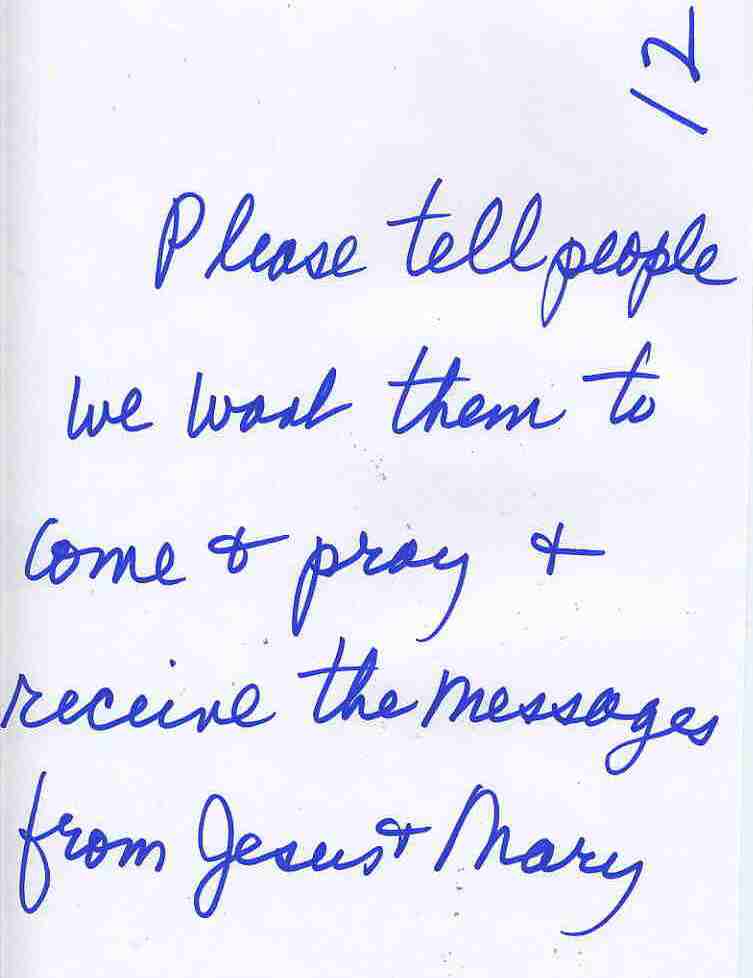 12
Please tell people
we want them to
come & pray &
receive the messages
from Jesus & Mary